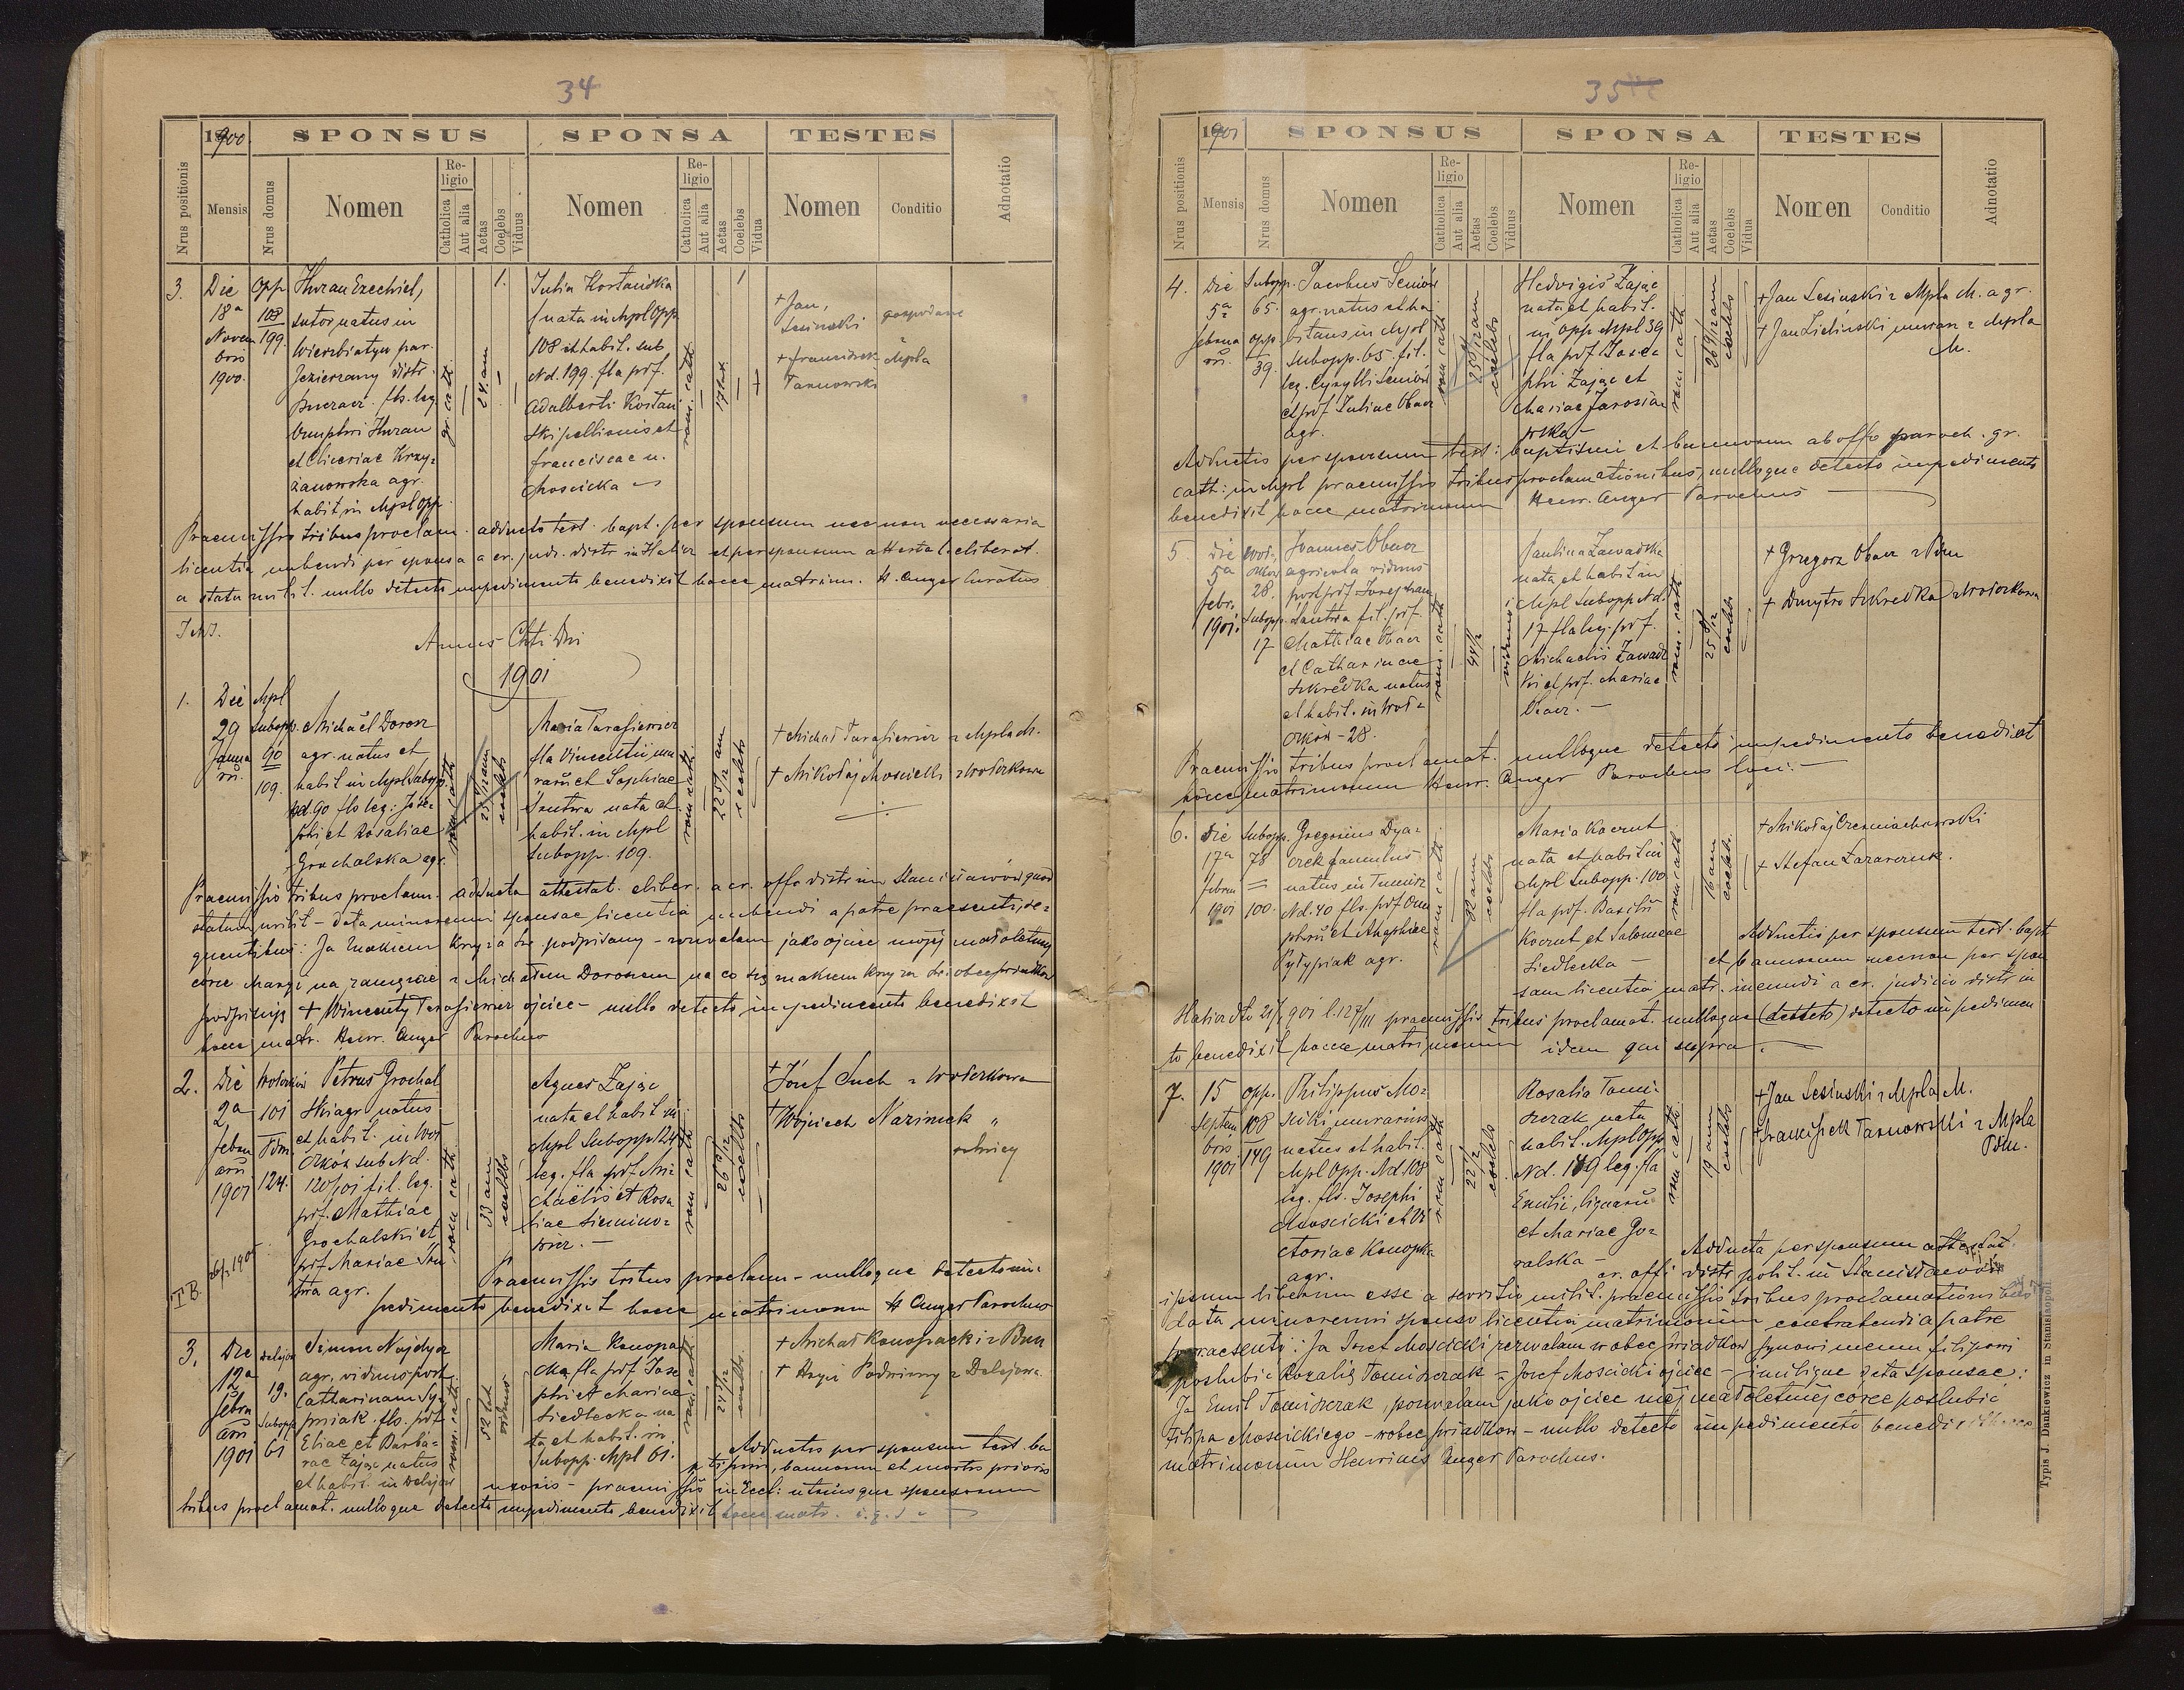 34
1900
SPONSUS
SPONSA
TESTES
Nrus positionis
Mensis
Nrus domus
Nomen
Religio
Catholica
Aut alia
Aetas
Coelebs
Viduus
Nomen
Religio
Catholica
Aut alia
Aetas
Coelebs
Vidua
Nomen
Conditio
Adnotatio
3.
Die
18a
Novem
bris
1900.
opp
108
199.
Huran Ezechiel,
sutor natus in
Wierzbiatyn par.
Jezierzany distr.
fls. leg.
Onuphrii Huran
et Gliceriae Krzy-
żanowska agr.
habit. in Mpl opp.
gr. cath.
24. an
1.
Julia Kostańska
nata in Mpl Opp
108 et habit. sub
Nd. 199. fla prf.
Adalberti Kostań
ski pellionis et
Franciscae n.
Mościcka
rom. cath.
1
+ Jan,
Lesinski gospodarz
+ Franciszek Mpla
Tarnowski
Praemissis tribus proclam. adducto test. bapt. per sponsum nec non necessaria
licentia nubendi per sponsa a cr. jud. distr. in Halicz et per sponsum attestat. liberat.
a statu milit. nullo detecto impedimento benedixit hocce matrim. H. Anger Curatus
Annus Chti Dni
1901
1.
Die
29
Janua
rii.
Mpl
Subopp.
90
109.
Michaël Doroż
agr. natus et
habit. in Mpl Subopp.
Nd. 90 fls leg: Jose-
phi et Rosaliae
Grochalska agr.
rom. cath.
coelebs
Maria Tarasiewicz
fla Vincentii mu
rarii et Sophiae
Sautra nata et
habit. in Mpl
Subopp. 109.
rom. cath.
22 5/12 am
coelebs
+ Michał Tarasiewicz z Mpla M.
+ Mikołaj Mościcki z Wołczkowa
Praemissis tribus proclam. adducta attestat. liber. a cr. offo distr. in Stanisławów quoad
statum milit. - data minorenni sponsae licentia nubendi a patre praesenti, se-
quentibus: Ja znakiem krzyża św. podpisany - zezwalam jako ojciec mojej małoletniej
córce Maryi na zamęzcie z Michałem Dorożem na co się znakiem krzyża św. obec świadków
podpisuję + Wincenty Tarasiewicz ojciec - nullo detecto impedimento benedixit
hocce matr. Henr. Anger Parochus
2.
Die
2a
Febru
arii
1901
Wołczków
101
Pdm.
124.
Petrus Grochal
ski agr. natus
et habit. in Woł
czków sub Nd.
120/101 fil. leg.
prf. Mathiae
Grochalski et
prf. Mariae
agr.
rom. cath.
33 ann
coelebs
Agnes Zając
nata et habit. in
Mpl Subopp 124
leg. fla prf. Mi
chaëlis et Rosa
liae Siemino-
wicz. -
rom. cath.
coelebs
+ Józef Such z Wołczkowa
+ Wojciech Nazimek "
rolnicy
T B.
Praemissis tribus proclam - nulloque detecto im-
pedimento benedixit hocce matrimonm H Anger Parochus
3.
Die
12a
Febru
arii
1901
Delejów
19.
Subopp
61
Simon Najdya
agr. viduus post
Catharinam
fls. prf.
Eliae et Barba-
rae Zając natus
et habit. in Delejów
rom. cath.
viduus
Maria Konopa
cka fla prf. Jose
phi et Mariae
Siedlecka na
ta et habit. in
Subopp. Mpl 61.
rom. cath.
24 5/12
coelebs.
+ Michał Konopacki z Pdm
+ Podwinny z Delejowa
Adductis per sponsum test. ba
ptismi, bannorum et mortis prioris
uxoris - praemissis in Eccl: utriusque sponsorum
tribus proclamat. nulloque detecto impedimento benedixit hocce matr. i. q. s.
35
1901
SPONSUS
SPONSA
TESTES
Nrus positionis
Mensis
Nrus domus
Nomen
Religio
Catholica
Aut alia
Aetas
Coelebs
Viduus
Nomen
Religio
Catholica
Aut alia
Aetas
Coelebs
Vidua
Nomen
Conditio
Adnotatio
4.
Die
5a
Februa
rii.
Subopp.
65.
opp.
39.
Jacobus Seniów
agr. natus et ha
bitans in Mpl
Subopp. 65. fil.
leg. Cyrylli Seniów
et prf. Juliae Obacz
agr.
rom. cath.
coelebs
Hedvigis Zając
nata et habit.
in opp Mpl 39
fla prf. Jose
phi Zając et
Mariae Jarosiń
ska -
rom cath.
26 9/12 am
coelebs
+ Jan Lesinski z Mpla M. agr.
+ Jan Zieliński murarz z Mpla
M.
Adductis per sponsum test: baptismi et bannorum ab offo paroch. gr.
cath: in Mpl praemissis tribus proclamationibus, nulloque detecto impedimento
benedixit hocce matrimonm Henr. Anger Parochus
5.
Die
5a
Febr.
1901.
Woł-
czków
28.
Subopp.
17
Joannes Obacz
agricola viduus
post prf.
Sautra fil. prf.
Mathiae Obacz
et Catharinae
Szkredka natus
et habit. in Woł-
czków - 28.
rom. cath.
viduus
Paulina Zawadzka
nata et habit. in
Mpl Subopp Nd.
17 fla leg. prf.
Michaelis Zawadz
ki et prf. Mariae
Obacz. -
rom. cath.
coelebs
+ Grzegorz Obacz z Pdm
+ Dmytro Szkredka z Wołczkowa
Praemissis tribus proclamat. nulloque detecto impedimento benedixit
hocce matrimonm Henr. Anger Parochus loci. -
6.
Die
17a
Febru
1901
Subopp.
78
100.
Gregorius Dya-
czek famulus
natus in Tumirz
Nd. 40 fls. prf Onu
phrii et Agaphiae
Pylypiak agr.
rom cath.
coelebs
Maria Koczut
nata et habit in
Mpl Subopp. 100
fla prf. Basilii
Koczut et Salomeae
Siedlecka -
rom cath.
coelebs.
+ Mikołaj Czerniachowski
+ Stefan Zarawczuk.
Adductis per sponsum test. bapt
et bannorum necnon per spon
sam licentia matr. ineundi a cr. judicio distr in
Halicz dto 21/1 901 l. 127/III praemissis tribus proclamat. nulloque (detteto) detecto impedimen
to benedixit hocce matrimonm idem qui supra. -
7.
15
Septem
bris
1901
opp.
108
149
Philippus Mo-
scicki murarius
natus et habit.
Mpl Opp. Nd. 108
leg. fls. Josephi
Mościcki et Vi
ctoriae Konopka
agr.
rom cath
22 1/2
coelebs
Rosalia Tomi-
szczak nata
habit. Mpl Opp
Nd. 149 leg. fla
Emilii, lignarii
et Mariae Go-
ralska -
rom cath.
19 ann
coelebs
+ Jan Lesinski z Mpla M.
+ Franciszek Tarnowski z Mpla
Pdm.
Adducta per sponsum attestat.
cr. offi distr. polit. in Stanisławów
ipsum liberum esse a servitio milit. praemissis tribus proclamationibus
data minorenni sponso licentia matrimonium contrahendi a patre
praesenti: Ja Józef Mościcki zezwalam wobec świadków synowi memu Filipowi
poslubić Rozalię Tomiszczak - Józef Mościcki ojciec - similique data sponsae:
Ja Emil Tomiszczak, pozwalam jako ojciec mej małoletniej córce poslubić
Filipa Mościckiego - wobec świadków - nullo detecto impedimento benedixit hocce
matrimonium Henricus Anger Parochus.
Typis J. Dankiewicz in Stanislaopoli